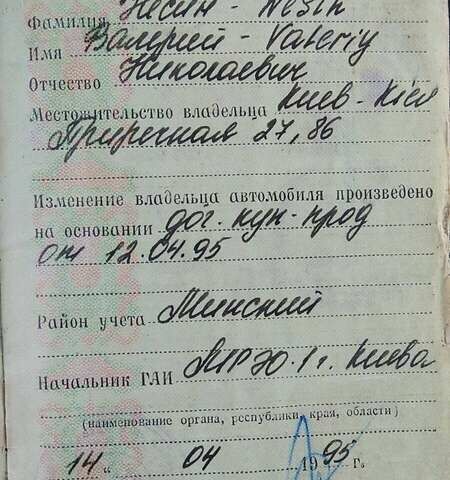 Фамилия Несин - Nesin
Имя Валерий - Valeriy
Отчество Николаевич
Местожительство владельца Киев - Kiev
Приречная 27, 86
Изменение владельца автомобиля произведено
на основании дог. куп-прод
от 12.04.95
Район учета Минский
Начальник ГАИ МРЭО.1 г. Киева
(наименование органа, республики, края, области)
14 " 04 1995 г.